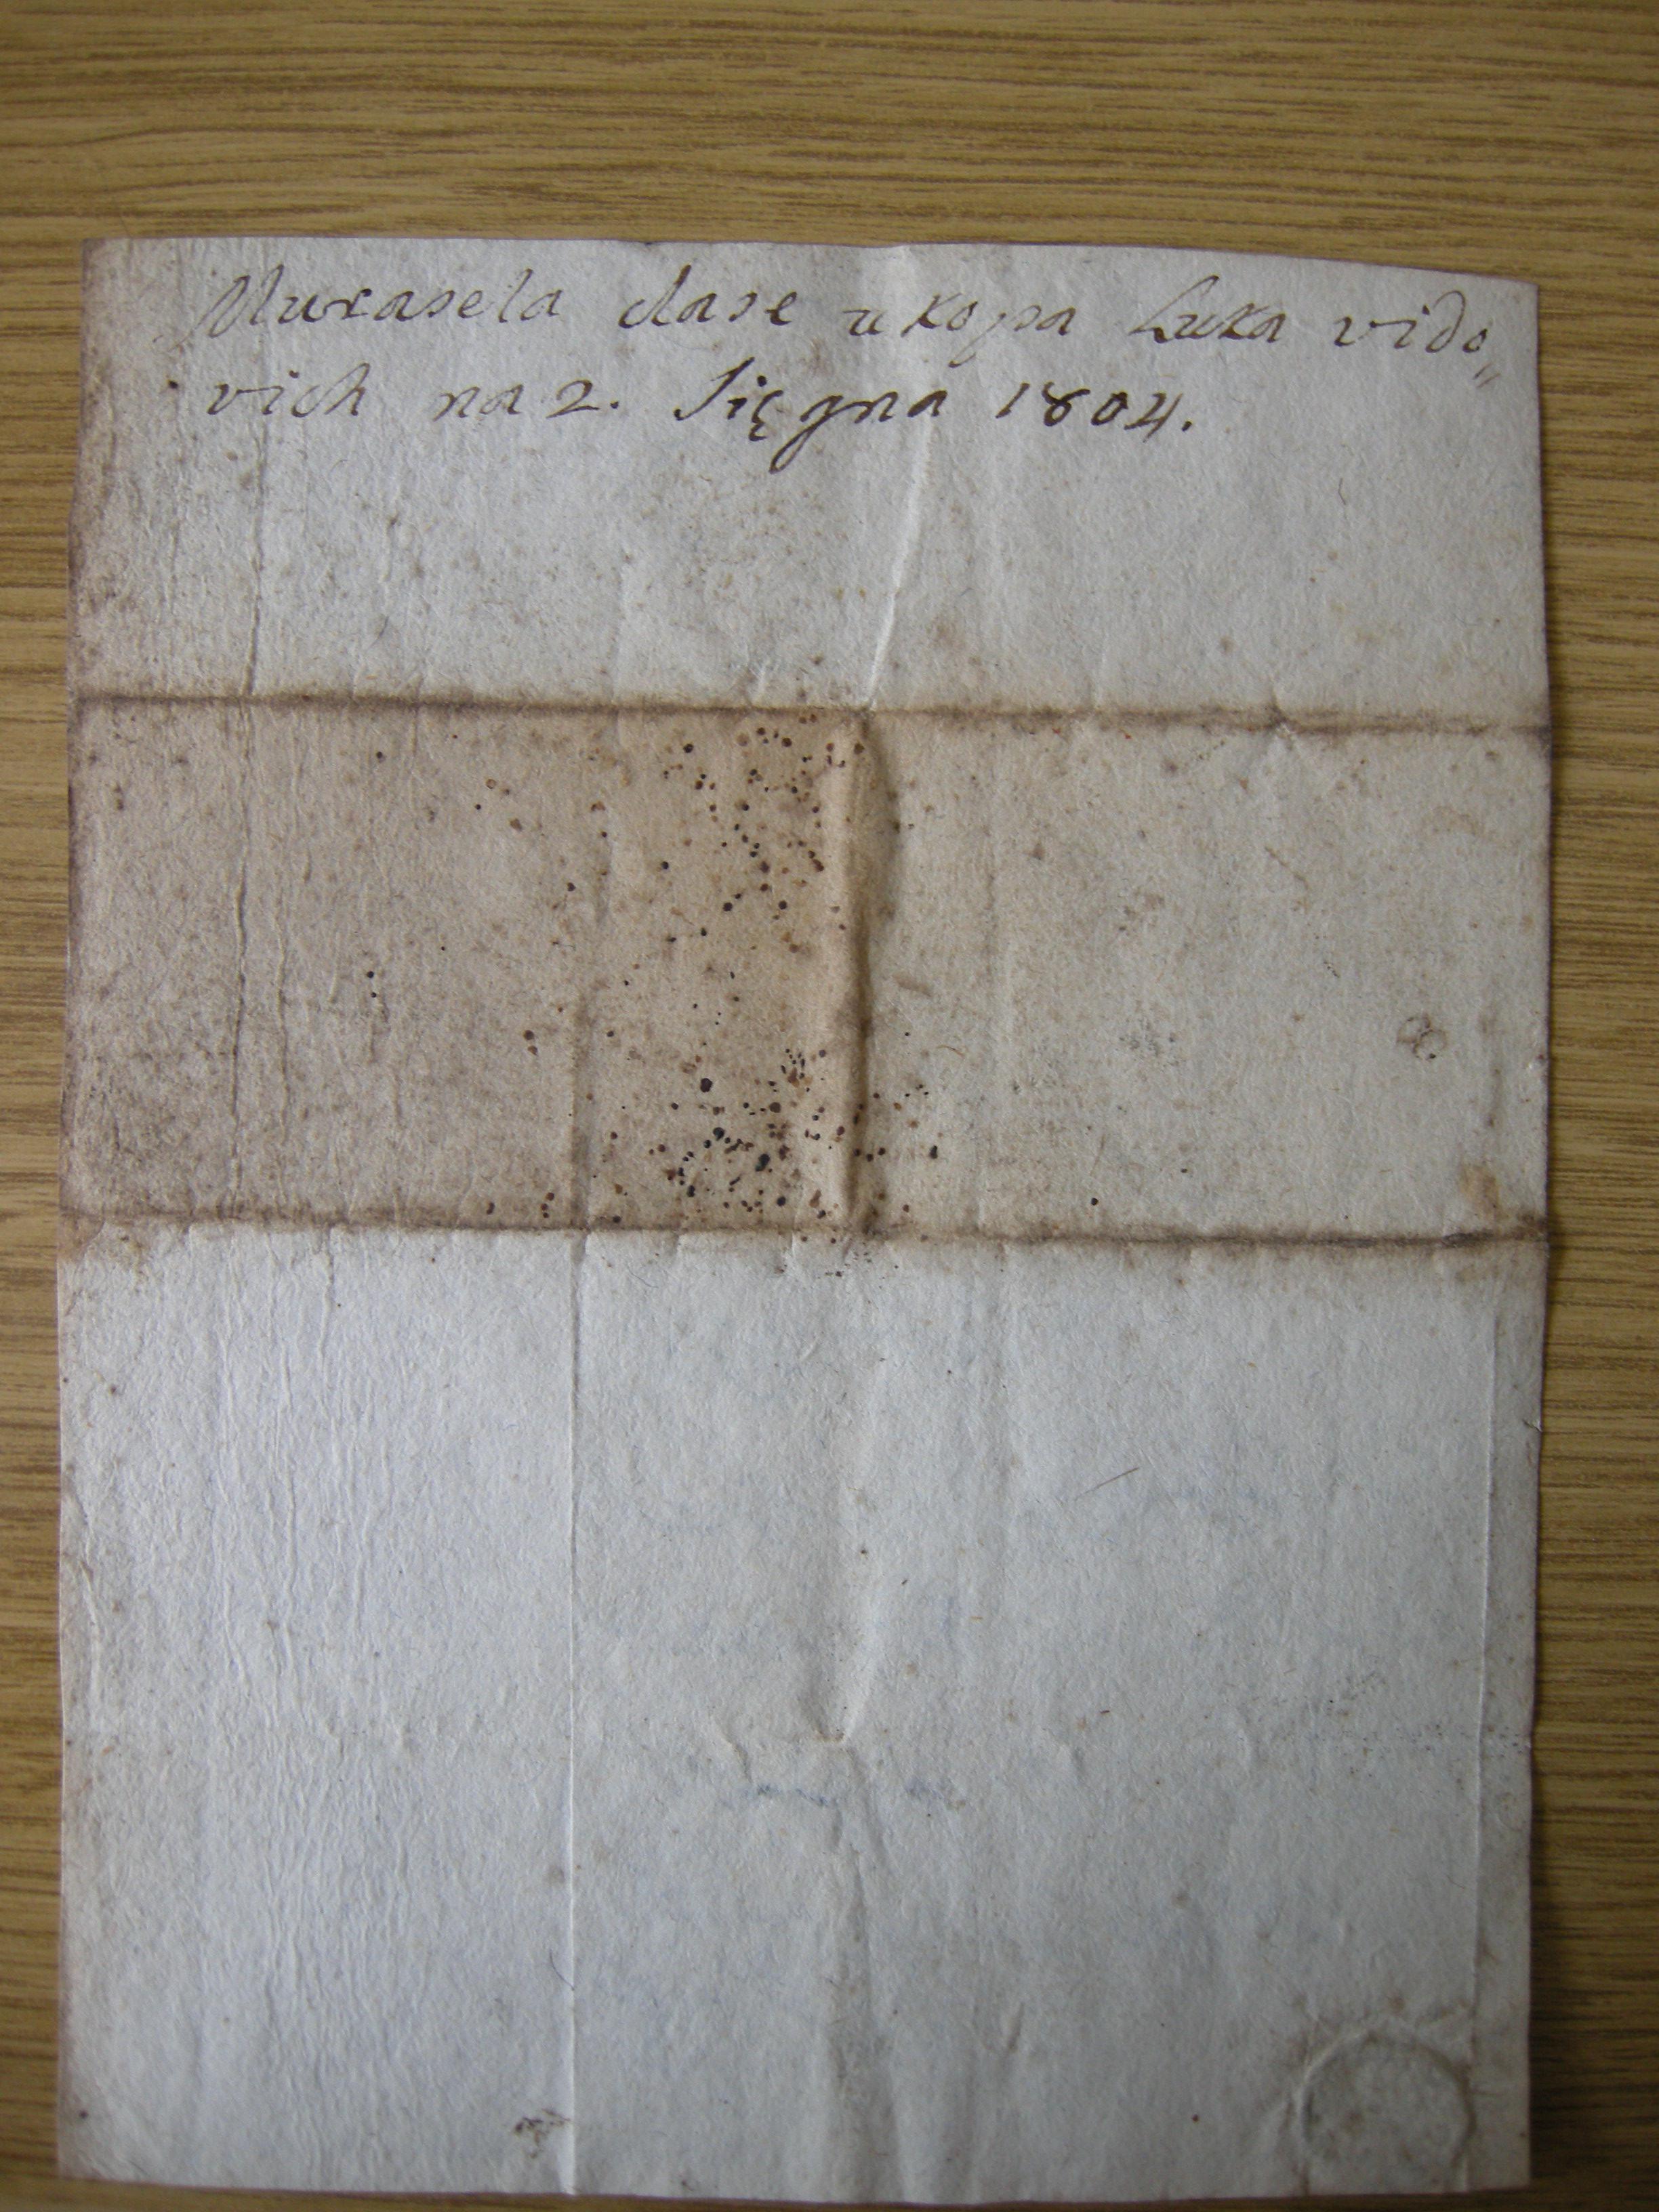 Murasela dase ukopa Luka vido„
vich na 2. Sięgna 1804.